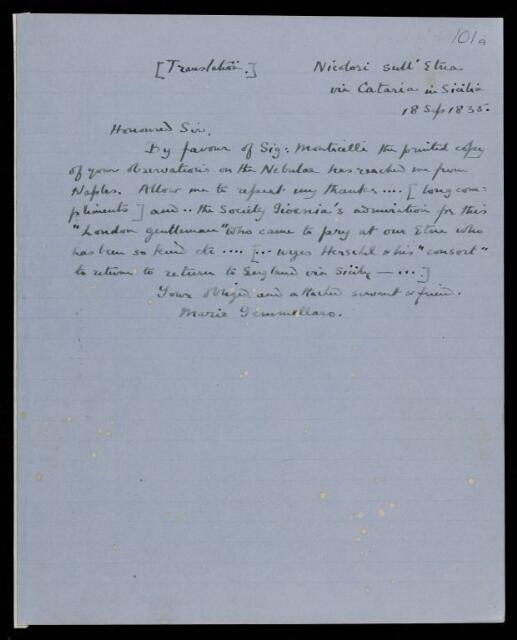 101a
[Translation.] Nicolosi sull' Etna
via Catania in Sicilia
18 Sep 1835.
Honoured Sir,
By favour of Sig: Monticelli the printed copy
of your observations on the Nebulae has reached me from
Naples. Allow me to repeat my thanks .... [long com-
pliments] and .. the Society Gioenia's admiration for this
"London gentleman" who came to pay at our Etna who
has been so kind etc .... [... urges Herschel & his "consort"
to return to return to England via Sicily — ....]
Your obliged and attached servant & friend.
Mario Gemmellaro.